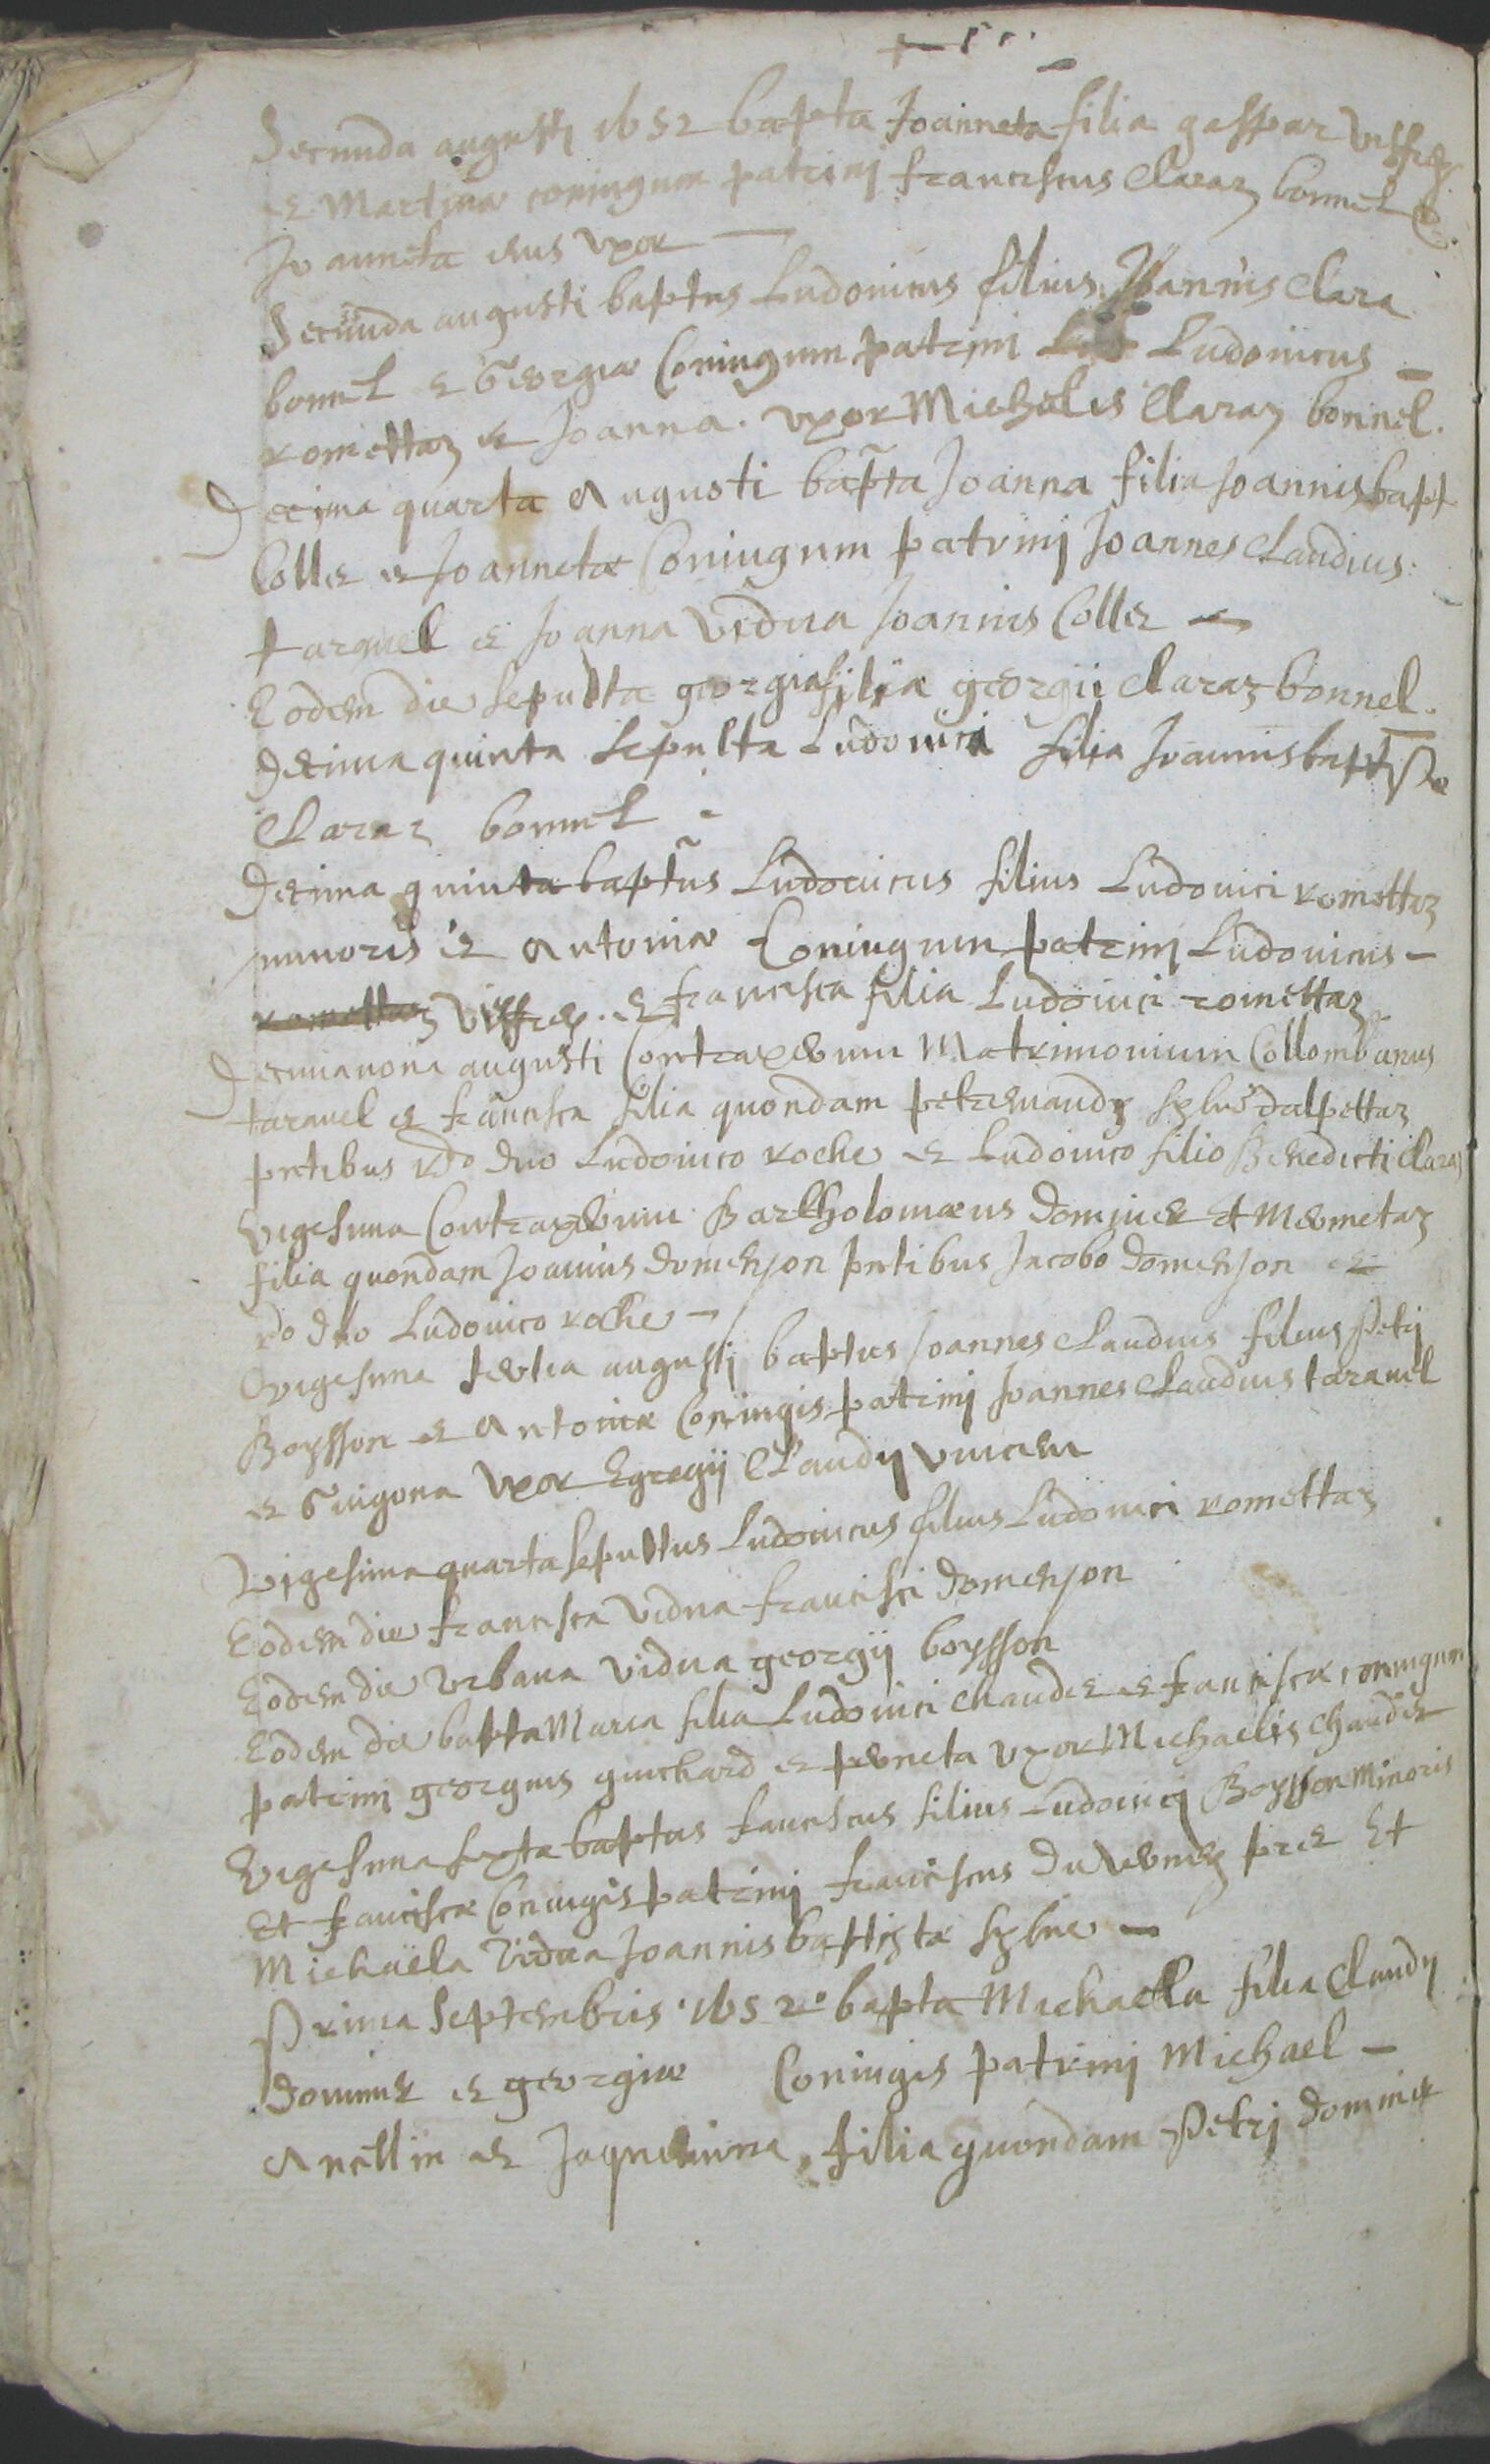 Secunda augusti 1652 bapta Joanneta filia gaspar viffrey
et Martinæ coniugum patrinj franciscus Claraz bonnel et
Joanneta eius vxor —
Secunda augusti baptus Ludouicus filius Joannis Clara
bonnel et Georgiæ Coniugum patrinj Ludouicus
romettaz et Joanna. vxor Michælis Claraz bonnel.
Decima quarta Augusti bapta Joanna filia Joannis bapt
Collet et Joannetæ Coniugum patrinj Joannes Claudius:
taravel et Joanna vidua Joannis Collet —
Eodem die sepulta georgia filia georgii Claraz bonnel.
Decima quinta sepulta Ludouica filia Joannis baptistæ
Claraz bonnel -
Decima quinta baptus Ludouicus filius Ludouici romettaz
minoris et Antoniæ Coniugum patrinj Ludouicus -
romettaz viffrey. et francisca filia Ludouici romettaz
Decimanona augusti Contraxerunt Matrimonium Collombanus
taravel et francisca filia quondam dalpettaz
pntibus Rdo Dno Ludouico roche et Ludouico filio Benedicti Claraz
Vigesima Contraxerunt Bartholomæus Dominet et
filia quondam Joannis domenjon pntibus Jacobo domenjon et
rdo Dno Ludouico roche —
Vigesima tertia augusti baptus Joannes Claudius filius Petrj
Boysson et Antoniæ Coniugis patrinj Joannes Claudius taravel
et Guigona vxor Egregij Claudij vincen
Vigesima quarta sepultus Ludouicus filius Ludouici romettaz
Eodem die francisca vidua francisci domenjon
Eodem die vrbana vidua georgij boysson
Eodem die bapta Maria filia Ludouici chaudet et franciscæ coniugum
patrinj georgius guichard et perneta vxor Michaelis chaudet
Vigesima sexta baptus franciscus filius Ludouicj Boysson Minoris
Et franciscæ Coniugis patrinj franciscus duverney Et
Michaëla vidua Joannis baptistæ
Prima septembris 1652° bapta Michaella filia Claudij
Dominet et georgiæ Coniugis patrinj Michael -
Anellin et Jaquemina, filia quondam Petrj dominet